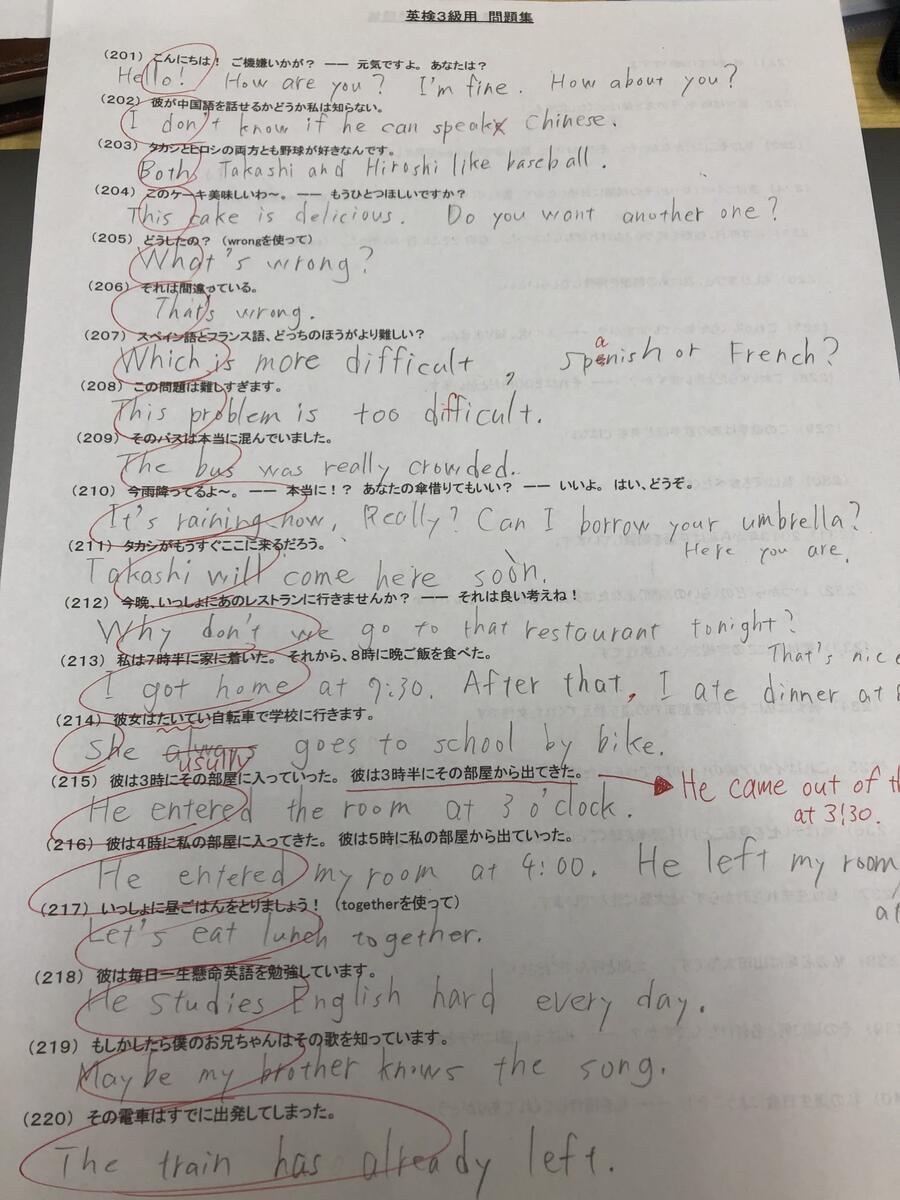 英検3級用 問題集
(201) こんにちは! ご機嫌いかが? ―― 元気ですよ。あなたは?
Hello! How are you? I'm fine. How about you?
(202) 彼が中国語を話せるかどうか私は知らない。
I don't know if he can speak Chinese.
(203) タカシとヒロシの両方とも野球が好きなんです。
Both Takashi and Hiroshi like baseball.
(204) このケーキ美味しいわ~。 ―― もうひとつほしいですか?
This cake is delicious. Do you want another one?
(205) どうしたの? (wrongを使って)
What's wrong?
(206) それは間違っている。
That's wrong.
(207) スペイン語とフランス語、どっちのほうがより難しい?
Which is more difficult, Spanish or French?
(208) この問題は難しすぎます。
This problem is too difficult.
(209) そのバスは本当に混んでいました。
The bus was really crowded.
(210) 今雨降ってるよ~。 ―― 本当に!? あなたの傘借りてもいい? ―― いいよ。はい、どうぞ。
It's raining now. Really? Can I borrow your umbrella?
Here you are.
(211) タカシがもうすぐここに来るだろう。
Takashi will come here soon.
(212) 今晩、いっしょにあのレストランに行きませんか? ―― それは良い考えね!
Why don't we go to that restaurant tonight?
That's nice
(213) 私は7時半に家に着いた。それから、8時に晩ご飯を食べた。
I got home at 7:30. After that, I ate dinner at 8
(214) 彼女はたいてい自転車で学校に行きます。
She always goes to school by bike.
usually
(215) 彼は3時にその部屋に入っていった。彼は3時半にその部屋から出てきた。
He came out of th
at 3:30.
He entered the room at 3 o'clock.
(216) 彼は4時に私の部屋に入ってきた。彼は5時に私の部屋から出ていった。
He entered my room at 4:00. He left my room
at
(217) いっしょに昼ごはんをとりましょう! (togetherを使って)
Let's eat lunch together.
(218) 彼は毎日一生懸命英語を勉強しています。
He studies English hard every day.
(219) もしかしたら僕のお兄ちゃんはその歌を知っています。
Maybe my brother knows the song.
(220) その電車はすでに出発してしまった。
The train has already left.